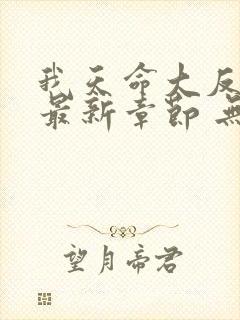 我天命大反
最新章节 无
望月帝君